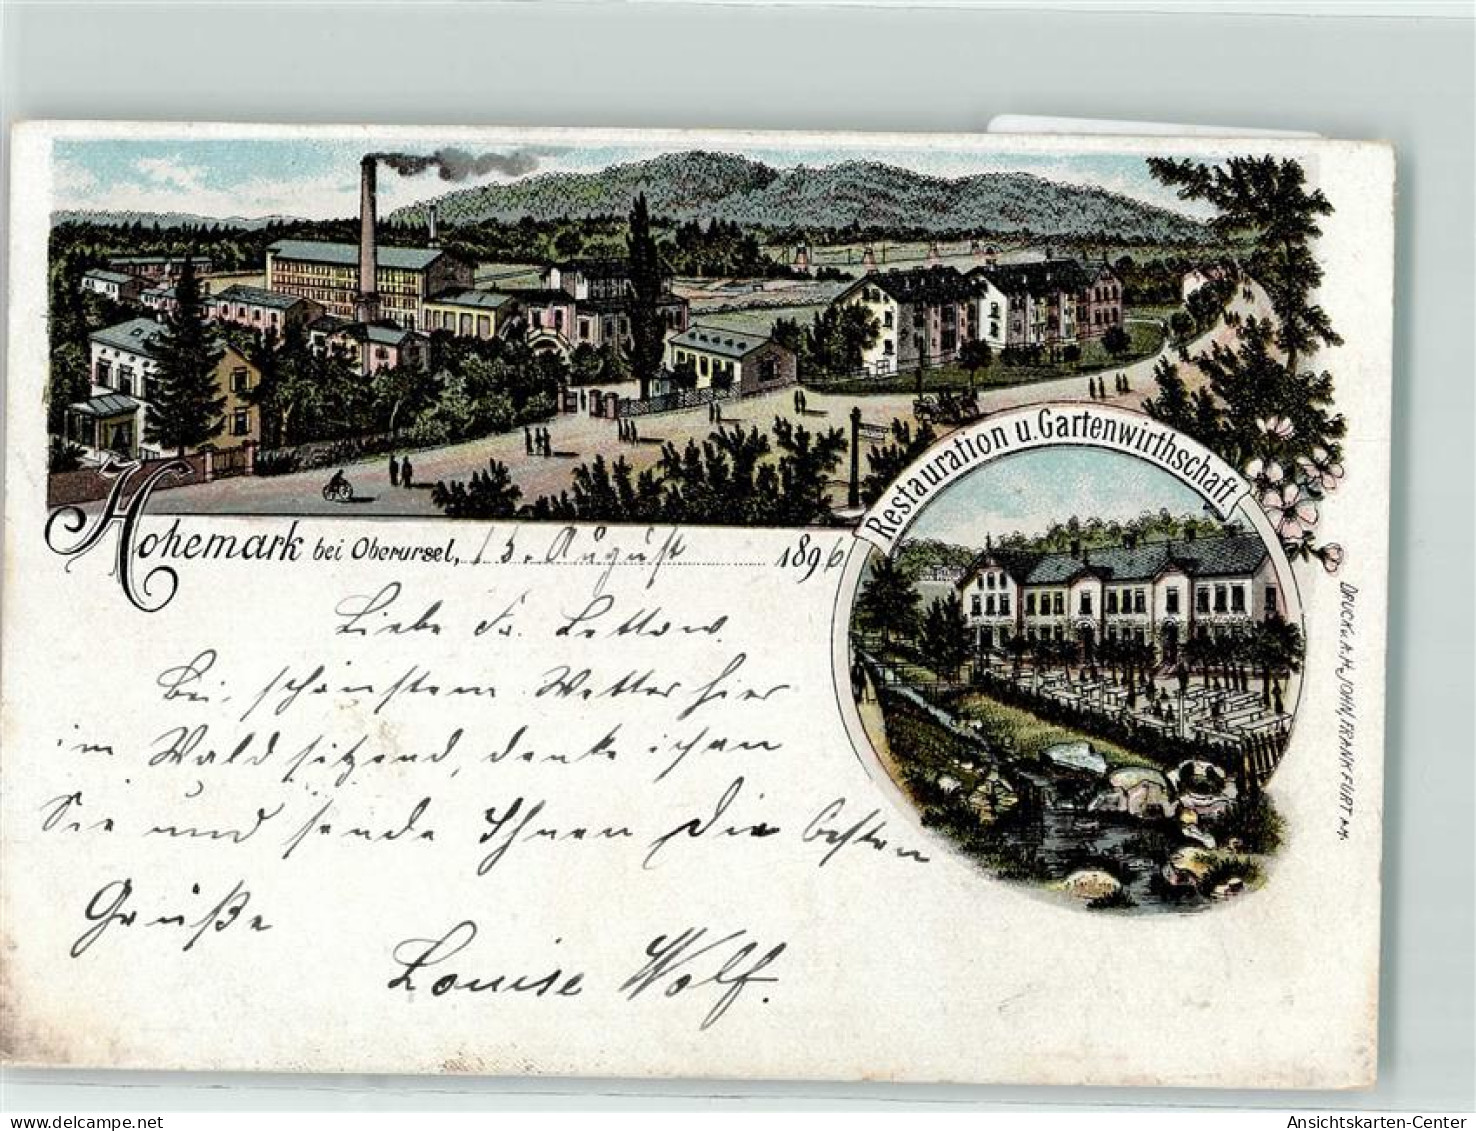 Restauration u. Gartenwirthschaft.
Hohemark bei Oberursel, 13. August 1896
Liebe Fr. Lettow.
Bei schönstem Wetter hier
im Wald sitzend, denke ich an
Sie und sende Ihnen die besten
Grüße
Louise Wolf.
DRUCK v. A. M. JOHN, FRANKFURT a.M.
Ansichtskarten-Center